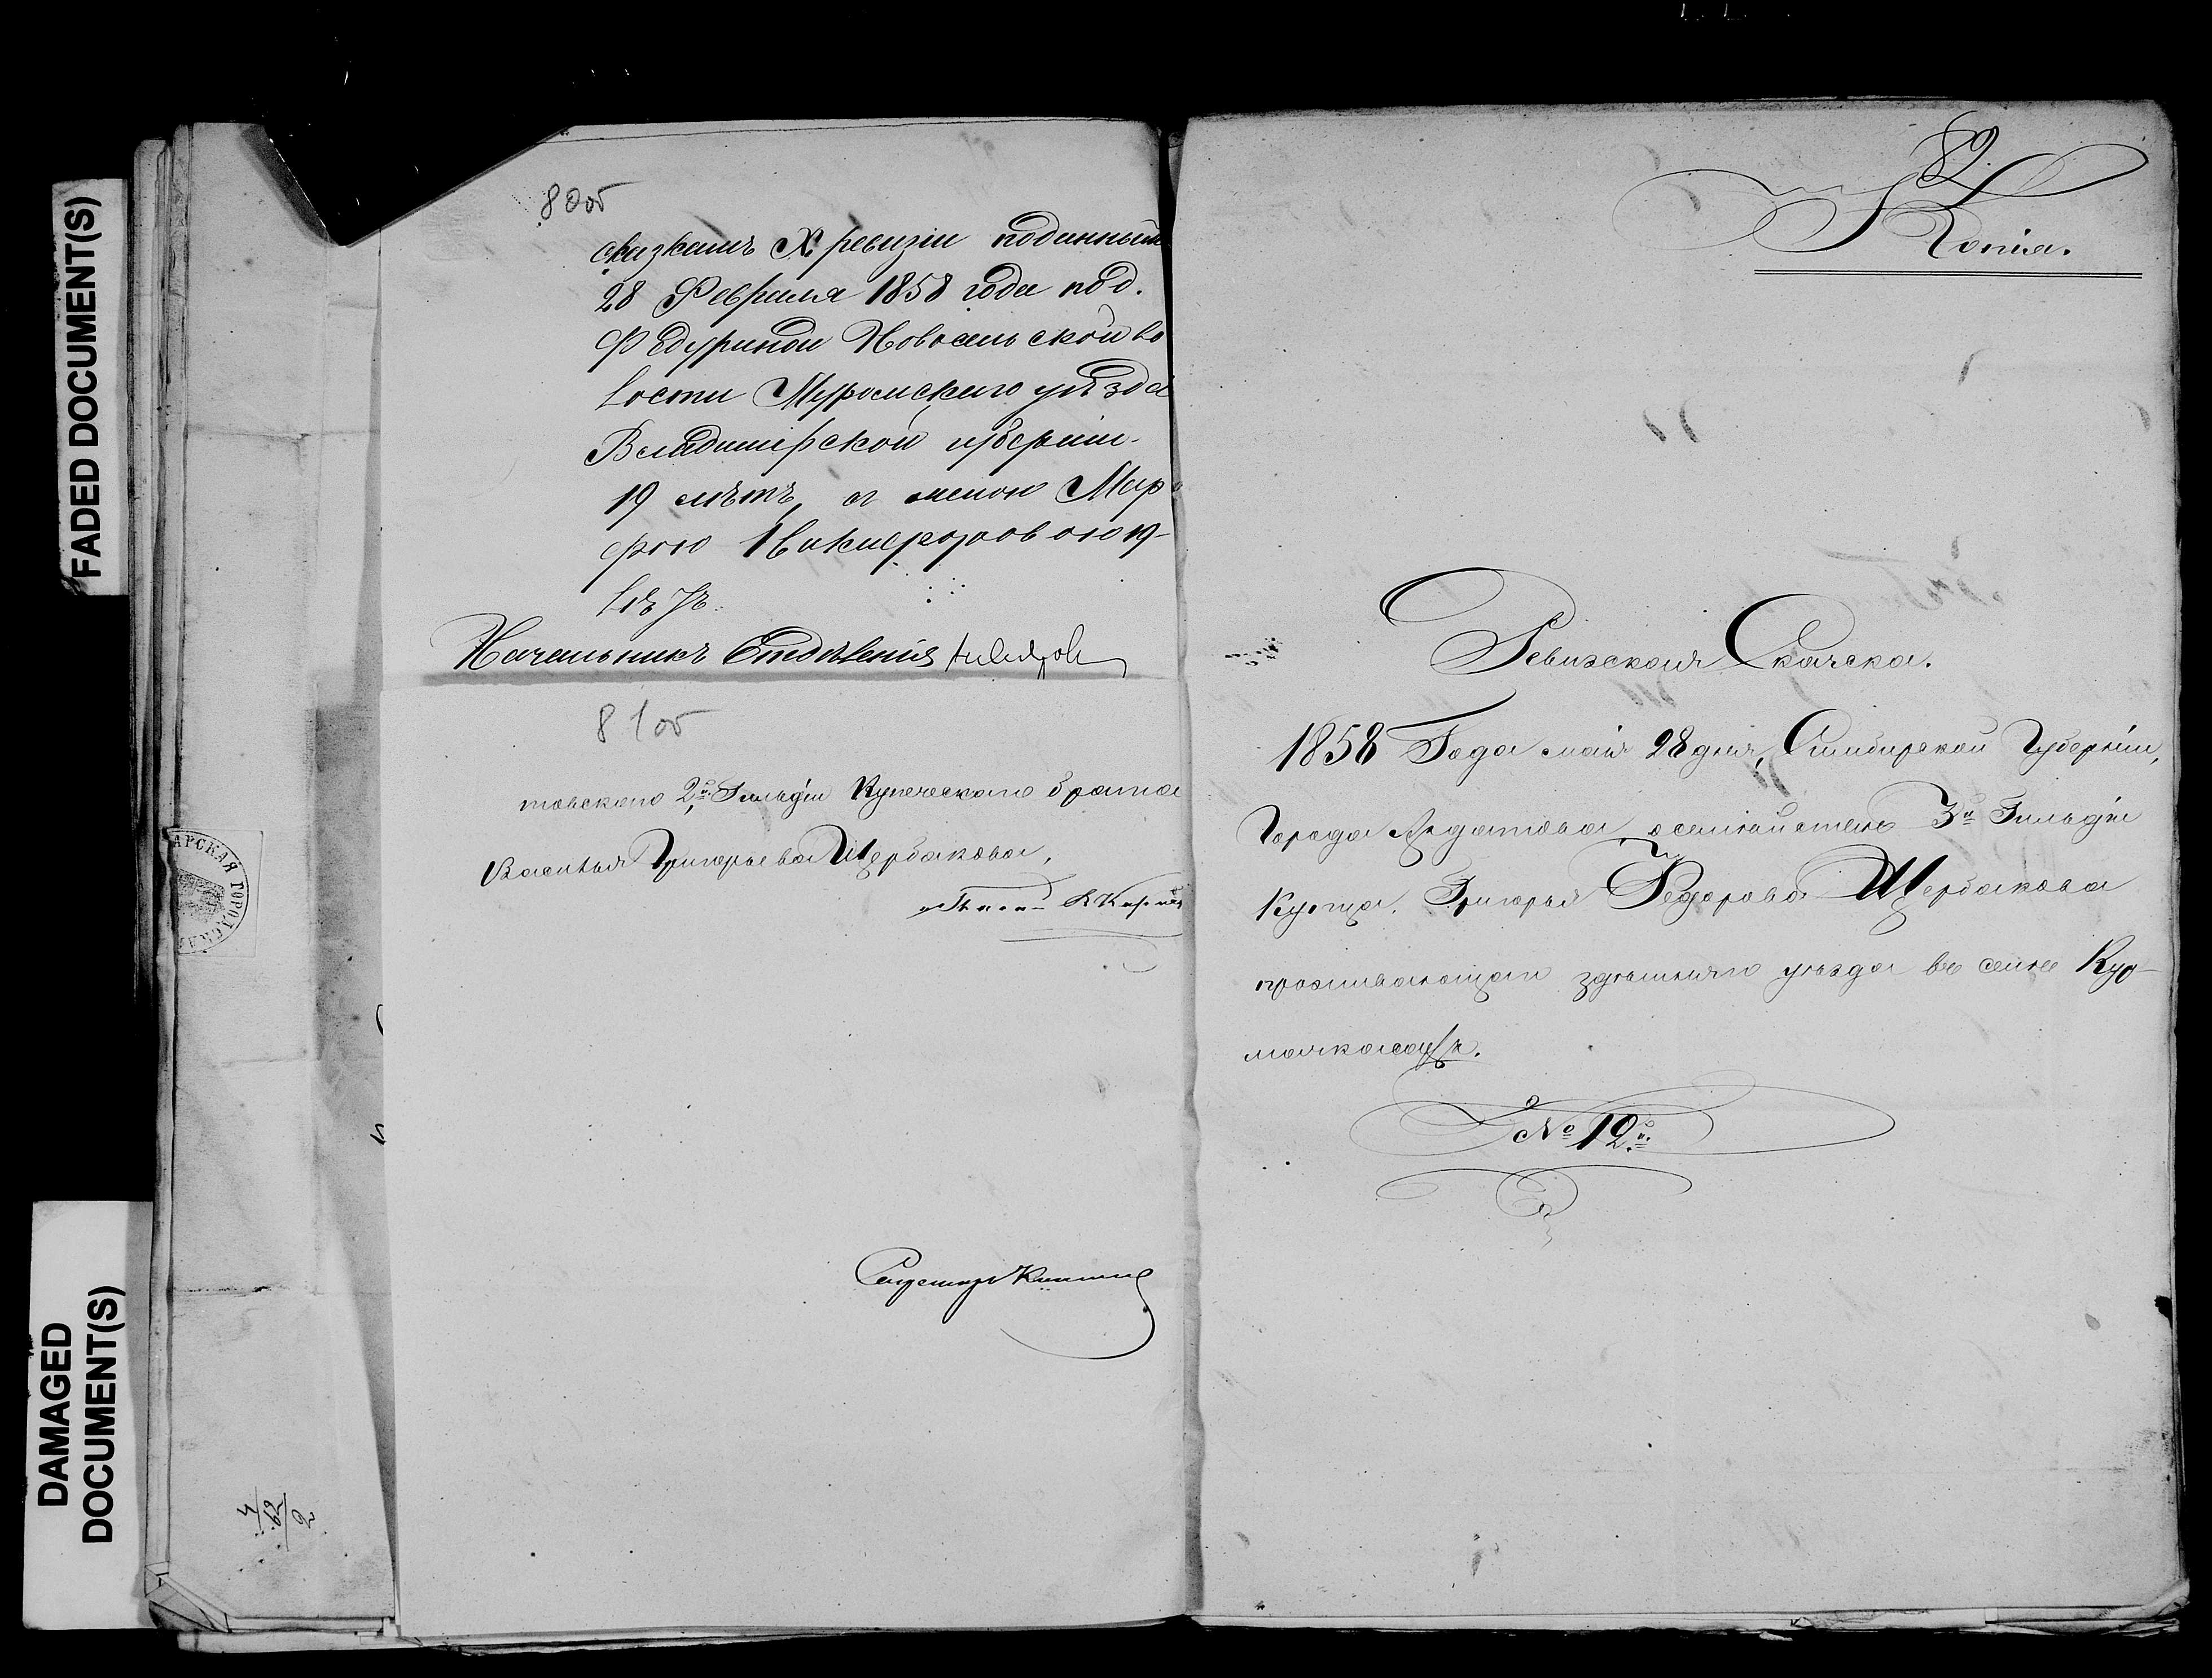 FADED DOCUMENT(S)
DAMAGED
DOCUMENT(S)
80об
сказкамъ X ревизіи поданнымъ
28 Февраля 1858 года под.
Федуриной Новосельской во
лости Муромскаго уѣзда
Владимірской губерніи
19 лѣтъ, а женою Мар
фою Никифоровою 19
лѣтъ.
Начальникъ Отдѣленія
81об
товскаго 2й Гильдіи Купеческаго брата
Василья Григорьева Щербакова,
Секретарь
АРСКАЯ ГОРОДСК
82
Копія.
Ревизская Скаска.
1858 Года маія 28 дня, Симбирской Губерніи,
Города Ардатова, о семействе 3й Гильдіи
Купца. Григорья Федорова Щербакова
проживающаго здѣшняго уѣзда въ селѣ Кур-
мачкасахъ.
№ 12й